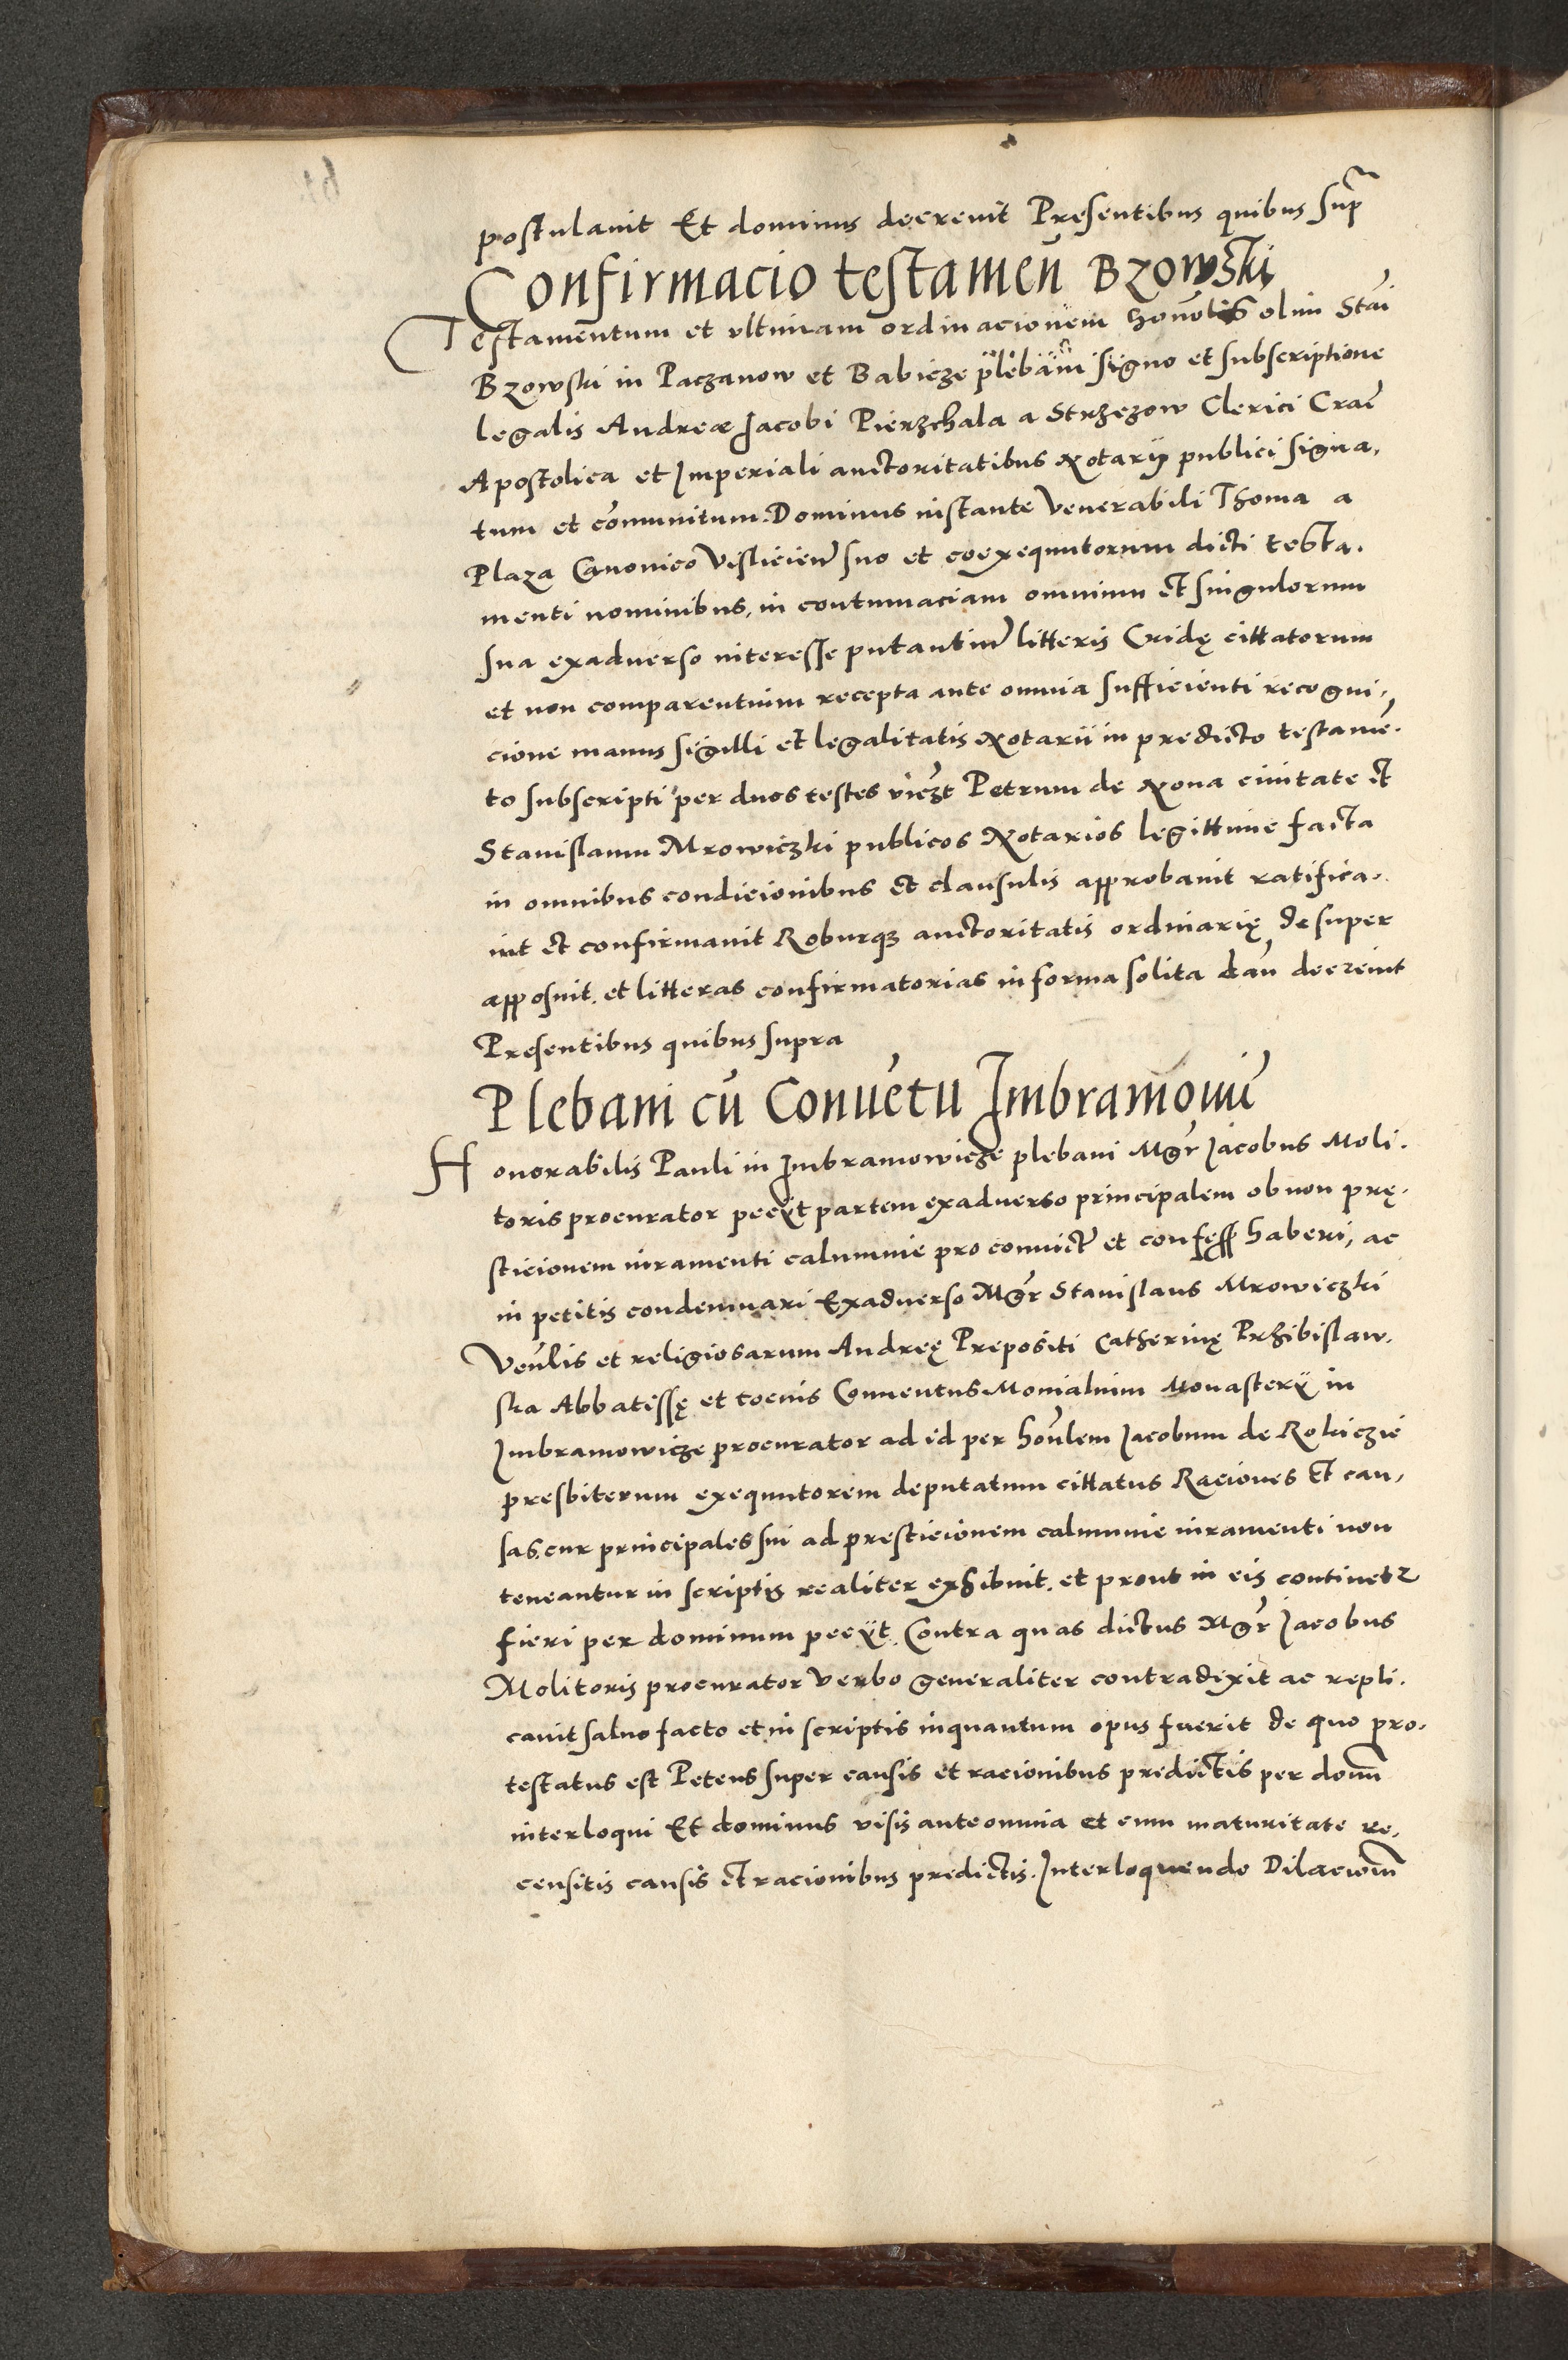 postulavit Et dominus decrevit Presentibus quibus sup̃
Confirmacio testamen̄ Bzowski
Testamentum et vltimam ordinacionem honōlis olim Stāi
Bzowski in Paczanow et Babicze plebani signo et subscriptione
legalis Andreæ Jacobi Pierzchala a Strzezow Clerici Craē
Apostolica et Imperiali auctoritatibus Notarij publici signa,
tum et cōmunitum. Dominus instante Venerabili Thoma a
Plaza Canonico Vislicien̄ suo et coexequutorum dicti testa,
menti nominibus, in contumaciam omnium et singulorum
sua exadverso interesse putantiū litteris Cridę cittatorum
et non comparentium recepta ante omnia sufficienti recogni,
cione manus sigilli et legalitatis Notarii in predicto testamē,
to subscripti per duos testes viczt Petrum de Nova civitate et
Stanislaum Mrowiczki publicos Notarios legittime facta
in omnibus condicionibus et clausulis approbavit ratifica,
vit et confirmavit Roburqȝ auctoritatis ordinarię desuper
apposuit. et litteras confirmatorias in forma solita dan̄ decrevit
Presentibus quibus supra
Plebani cū Conuētu Imbramouiē
Honorabilis Pauli in Imbramowicze plebani Mgr̄ Jacobus Moli,
toris procurator peciit partem exadverso principalem ob non prę,
sticionem iuramenti calumnie pro convict̄ et confess̄ haberi, ac
in petitis condemnari Exadverso Mgr̄ Stanislaus Mrowiczki
Ven̄lis et religiosarum Andreę Prepositi Catherinę Przibislaw,
ska Abbatissę et tocius Conventus Monialium Monasterij in
Imbramowicze procurator ad id per hon̄lem Jacobum de Rokiczie
presbiterum exequutorem deputatum cittatus Raciones et cau,
sas, cur principales sui ad presticionem calumnie iuramenti non
teneantur in scriptis realiter exhibuit. et prout in eis continetꝛ
fieri per dominum peciit. Contra quas dictus Mgr̄ Jacobus
Molitoris procurator verbo generaliter contradixit ac repli,
cavit salvo facto et in scriptis inquantum opus fuerit de quo pro,
testatus est Petens super causis et racionibus predictis per dom̄
interloqui Et dominus visis ante omnia et cum maturitate re,
censitis causis et racionibus predictis. Interloquendo Dilacionē